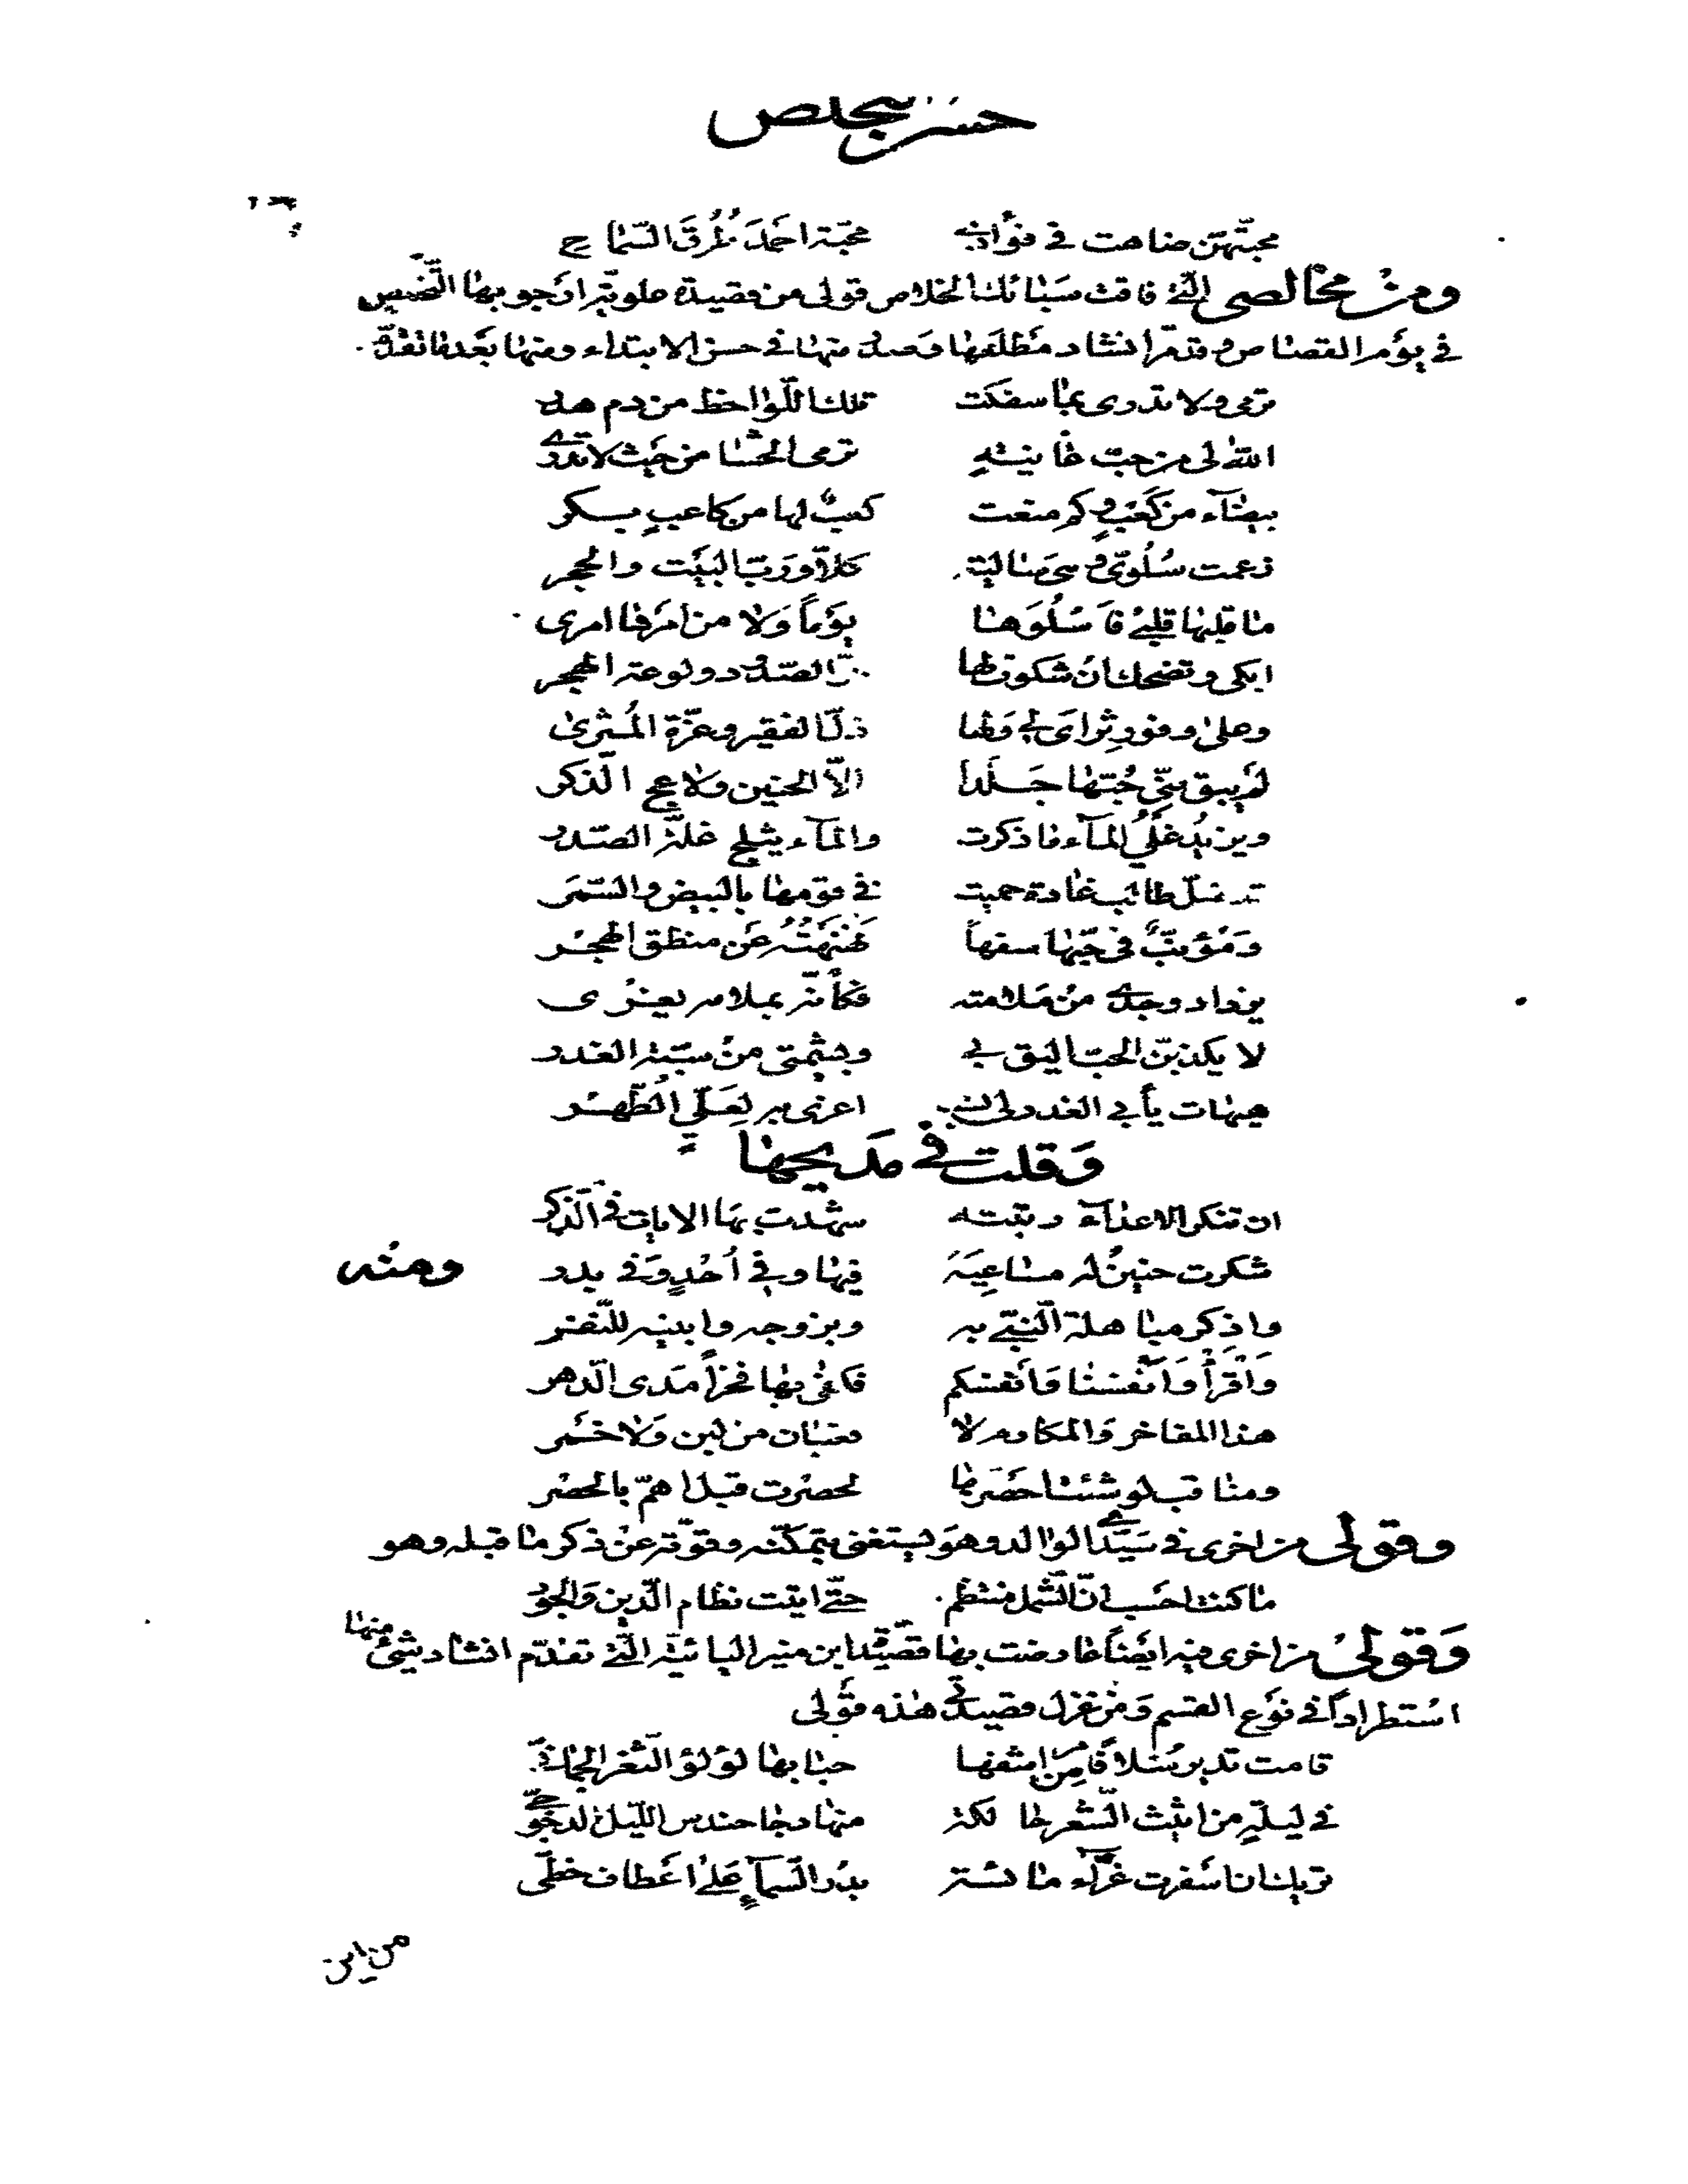 حسن تخلص
محبتهن ضاهت في فؤادي محبة احمد طرق السماح
ومن مخالصي التي فاقت سبائك الخلاص قولي من قصيدة علوية ارجو بها التخصيص
في يوم القصاص وقد مر انشاد مطلعها وصدر منها في حسن الابتداء ومنها بعد ما تقدم
ترمي ولا تدري بما سفكت تلك اللواحظ من دم هدر
الله لي من حب غانية ترمي الحشا من حيث لا تدري
بيضاء من كعب وكم منعت كعب لها من كاعب بكر
زعمت سلوي وهي سالية كلا ورب البيت والحجر
ما قلبها قلبي فاسلوها يوما ولا من امرها امري
ابكي وتضحك ان شكوت لها حر الصدود ولوعة الهجر
وعلى وفور ثراى لي ولها ذل الفقير وعزة المثري
لم يبق مني حبها جلدا الا الحنين ولاعج الذكر
ويزيد غلي الماء ما ذكرت والماء يثلج غلة الصدر
قد ضل طالب غادة حميت في قومها بالبيض والسمر
ومؤنب في حبها سفها نهنهته عن منطق الهجر
يزداد وجدي من ملامته فكأنه بملامه يغري
لا يكذبن الحب اليق بي وبشيمتي من سبة الغدر
هيهات يأبى الغدر لي نسب اعزى به لعلي الطهر
وقلت في مديحها
ان تنكر الاعداء رتبته شهدت بها الايات في الذكر
شكرت حنين له مساعيه فيها وفي أحد وفي بدر ومنه
واذكر مباهلة النبي به وبزوجه وابنيه للنفر
واقرأ وانفسنا وانفسكم فكفى بها فخرا مدى الدهر
هذا المفاخر والمكارم لا قعبان من لبن ولا خمر
ومناقب لو شئنا حصر لها لحصرت قبل اهم بالحصر
وقولي من اخرى في سيدي الوالد وهو يستغني بتمكنه وقوته عن ذكر ما قبله وهو
ما كنت احسب ان الشمل منتظم حتى رايت نظام الدين والجود
وقولي من اخرى فيه ايضا عارضت بها قصيدة ابن منير اليائية التي تقدم انشاد شيئ منها
استطرادا في نوع القسم ومن غزل قصيدتي هذه قولي
قامت تدير سلافا من مراشفها حبابها لؤلؤ الثغر الجماني
في ليلة من اثيث الشعر حالكة منها دجا حندس الليل الدجوجي
تريك ان اسفرت غراء مائسة بدر السماء على اعطاف خطي
من اين